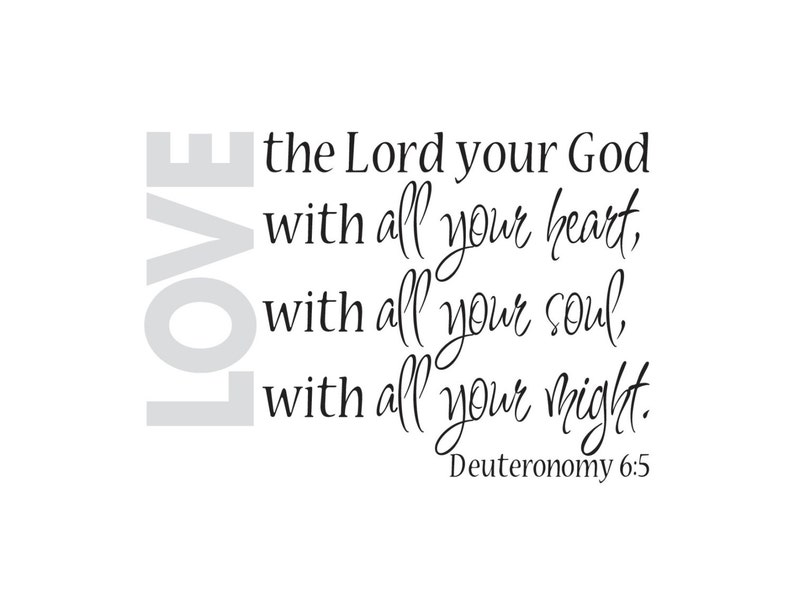 LOVE
the Lord your God
with all your heart,
with all your soul,
with all your might.
Deuteronomy 6:5